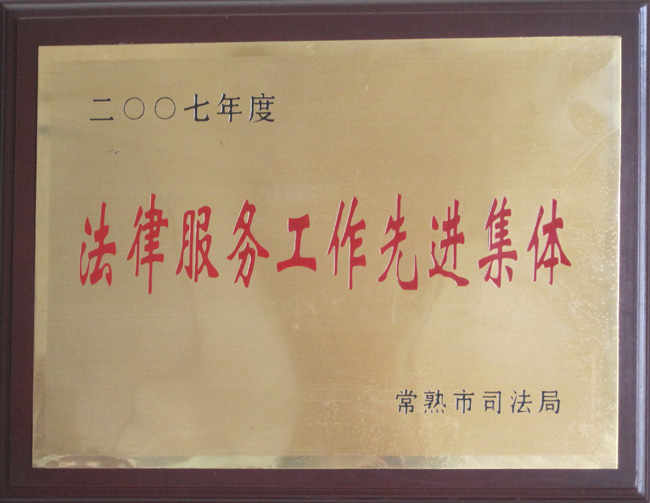 二〇〇七年度
法律服务工作先进集体
常熟市司法局